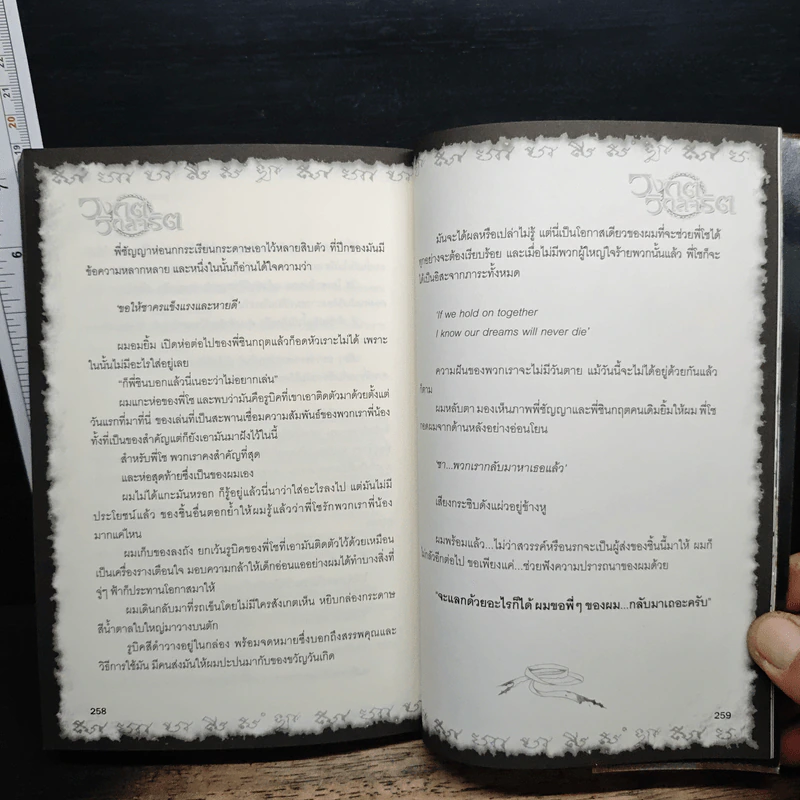 วงกต
วาสาริต
พี่ชัญญาห่อนกกระเรียนกระดาษเอาไว้หลายสิบตัว ที่ปีกของมันมี
ข้อความหลากหลาย และหนึ่งในนั้นก็อ่านได้ใจความว่า
'ขอให้ชาครแข็งแรงและหายดี'
ผมอมยิ้ม เปิดห่อต่อไปของพี่ชินกฤตแล้วก็อดหัวเราะไม่ได้ เพราะ
ในนั้นไม่มีอะไรใส่อยู่เลย
"ก็พี่ชินบอกแล้วนี่เนอะว่าไม่อยากเล่น"
ผมแกะห่อของพี่โช และพบว่ามันคือรูบิคที่เขาเอาติดตัวมาด้วยตั้งแต่
วันแรกที่มาที่นี่ ของเล่นที่เป็นสะพานเชื่อมความสัมพันธ์ของพวกเราพี่น้อง
ทั้งที่เป็นของสำคัญแต่ก็ยังเอามันมาฝังไว้ในนี้
สำหรับพี่โช พวกเราคงสำคัญที่สุด
และห่อสุดท้ายซึ่งเป็นของผมเอง
ผมไม่ได้แกะมันหรอก ก็รู้อยู่แล้วนี่นาว่าใส่อะไรลงไป แต่มันไม่มี
ประโยชน์แล้ว ของชิ้นอื่นตอกย้ำให้ผมรู้แล้วว่าพี่โชรักพวกเราพี่น้อง
มากแค่ไหน
ผมเก็บของลงถัง ยกเว้นรูบิคของพี่โชที่เอามันติดตัวไว้ด้วยเหมือน
เป็นเครื่องรางเตือนใจ มอบความกล้าให้เด็กอ่อนแออย่างผมได้ทำบางสิ่งที่
จู่ๆ ฟ้าก็ประทานโอกาสมาให้
ผมเดินกลับมาที่รถเข็นโดยไม่มีใครสังเกตเห็น หยิบกล่องกระดาษ
สีน้ำตาลใบใหญ่มาวางบนตัก
รูบิคสีดำวางอยู่ในกล่อง พร้อมจดหมายซึ่งบอกถึงสรรพคุณและ
วิธีการใช้มัน มีคนส่งมันให้ผมปะปนมากับของขวัญวันเกิด
258
วงกต
วาสาริต
มันจะได้ผลหรือเปล่าไม่รู้ แต่นี่เป็นโอกาสเดียวของผมที่จะช่วยพี่โชได้
ทุกอย่างจะต้องเรียบร้อย และเมื่อไม่มีพวกผู้ใหญ่ใจร้ายพวกนั้นแล้ว พี่โชก็จะ
ได้เป็นอิสระจากภาระทั้งหมด
'If we hold on together
I know our dreams will never die'
ความฝันของพวกเราจะไม่มีวันตาย แม้วันนี้จะไม่ได้อยู่ด้วยกันแล้ว
ก็ตาม
ผมหลับตา มองเห็นภาพพี่ชัญญาและพี่ชินกฤตคนเดิมยิ้มให้ผม พี่โช
กอดผมจากด้านหลังอย่างอ่อนโยน
'ชา...พวกเรากลับมาหาเธอแล้ว'
เสียงกระซิบดังแผ่วอยู่ข้างหู
ผมพร้อมแล้ว...ไม่ว่าสวรรค์หรือนรกจะเป็นผู้ส่งของชิ้นนี้มาให้ ผมก็
ไม่กลัวอีกต่อไป ขอเพียงแค่...ช่วยฟังความปรารถนาของผมด้วย
"จะแลกด้วยอะไรก็ได้ ผมขอพี่ๆ ของผม...กลับมาเถอะครับ"
259
7
6
22
21
20
19